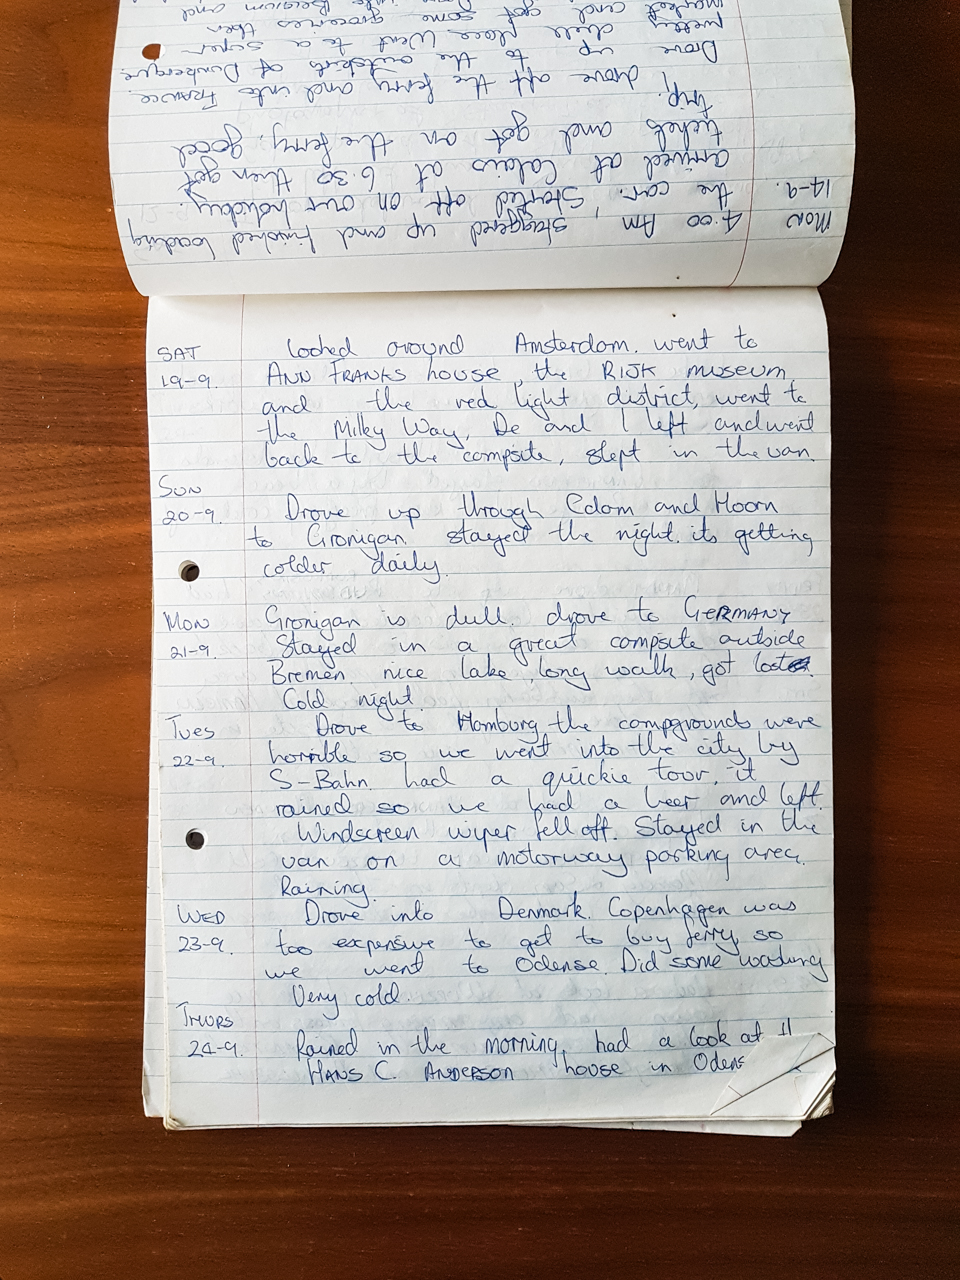 MON 4.00 Am staggered up and finished loading
14-9. the car. Started off on our holiday.
arrived at Calais at 6.30 then got
tickets and got on the ferry, good
trip.
drove off the ferry and into FRANCE.
Drove up to the outskirts of Dunkerque
pretty dull place. Went to a super
market and got some groceries then
Belgium and
SAT looked around Amsterdam. went to
19-9. ANN FRANKS house, the RIJK museum
and the red light district, went to
the Milky Way, De and I left and went
back to the campsite, slept in the van.
SUN
20-9. Drove up through Edam and Hoorn
to Gronigan. stayed the night. its getting
colder daily.
MON Gronigan is dull. drove to GERMANY
21-9. Stayed in a great campsite outside
Bremen. nice lake, long walk, got lost.
Cold night.
TUES Drove to Hamburg the campgrounds were
22-9. horrible so we went into the city by
S-Bahn. had a quickie tour. it
rained so we had a beer and left.
Windscreen wiper fell off. Stayed in the
van on a motorway parking area.
Raining.
WED Drove into Denmark. Copenhagen was
23-9. too expensive to get to buy ferry, so
we went to Odense. Did some washing
Very cold.
THURS
24-9. Rained in the morning, had a look at
HANS C. ANDERSON house in Odens